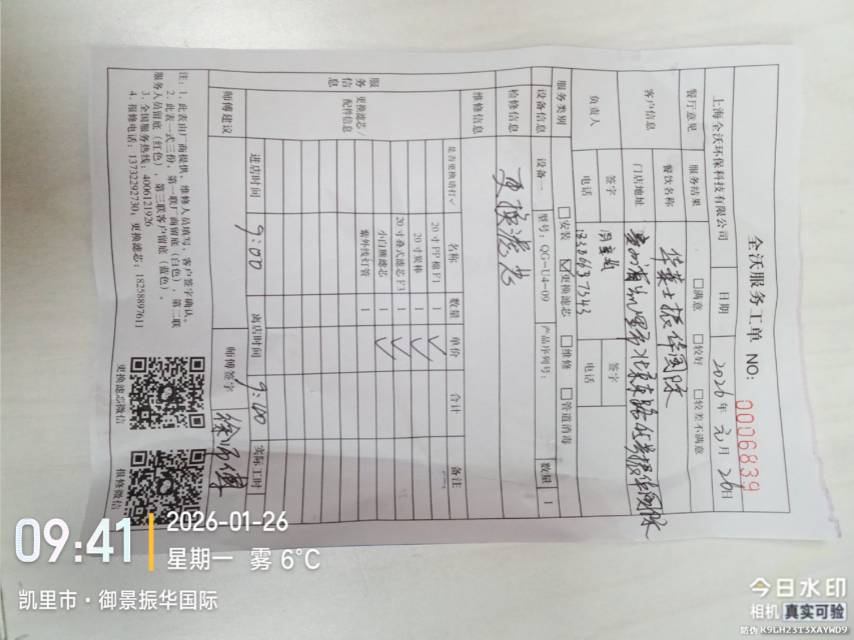 全沃服务工单 NO: 0006839
上海全沃环保科技有限公司 日期 2026年元月26日
餐厅意见 服务结果 □满意 □较好 □较差不满意
客户信息 餐饮名称 华莱士振华国际
门店地址 贵州省凯里市北京东路振华国际
负责人 签字 签字
电话 电话
服务类别 □安装 ☑更换滤芯 □维修 □管道消毒
设备信息 设备一 型号：QG-U4-09 产品序列号： 数量 1
检修信息 更换滤芯
维修信息
服务信息
更换滤芯/配件信息
是否更换请打✓ 名称 数量 单价 合计 备注
20寸PP棉F1 1 ✓
20寸炭棒 1 ✓
20寸叠式滤芯F3 1 ✓
小白熊滤芯 1 ✓
紫外线灯管 1
师傅建议
进店时间 9:00 离店时间 9:40 实际工时
师傅签字 徐师傅
注：1. 此表由厂商提供，维修人员填写，客户签字确认。
2. 此表一式三份，第一联厂商留底（白色），第二联服务人员留底（红色），第三联客户留底（蓝色）。
3. 全国服务热线：4006121926
4. 报修电话：13732292730，更换滤芯：18258897611
更换滤芯微信
报修微信
09:41
2026-01-26
星期一 雾 6℃
凯里市·御景振华国际
今日水印
相机 真实可验
防伪 K9LH23T3XAYWD9